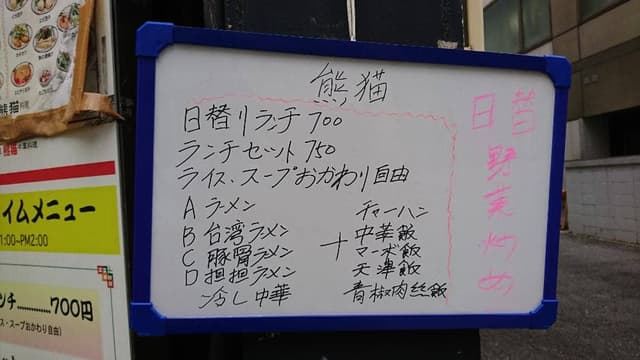 熊猫
日替りランチ 700
ランチセット 750
ライス、スープおかわり自由
A ラーメン
B 台湾ラーメン
C 豚骨ラーメン
D 担担ラーメン
冷し中華
+
チャーハン
中華飯
マーボ飯
天津飯
青椒肉絲飯
日替
野菜炒め
熊猫
イムメニュー
1:00~PM2:00
ンチ............700円
ス・スープおかわり自由)